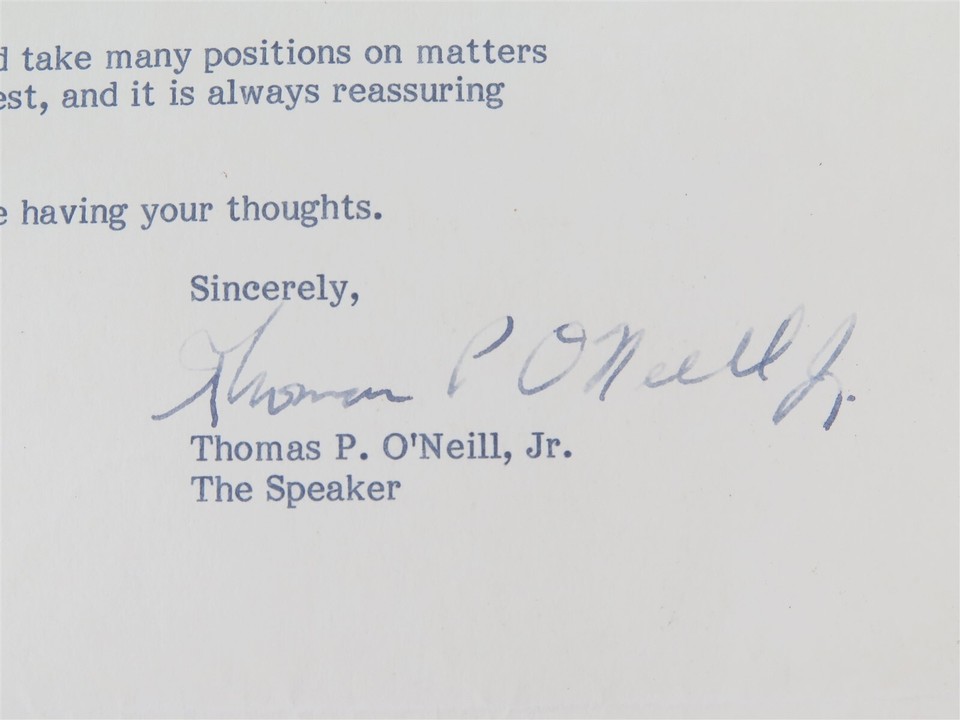 take many positions on matters
est, and it is always reassuring
having your thoughts.
Sincerely,
Thomas P O'Neill Jr.
Thomas P. O'Neill, Jr.
The Speaker